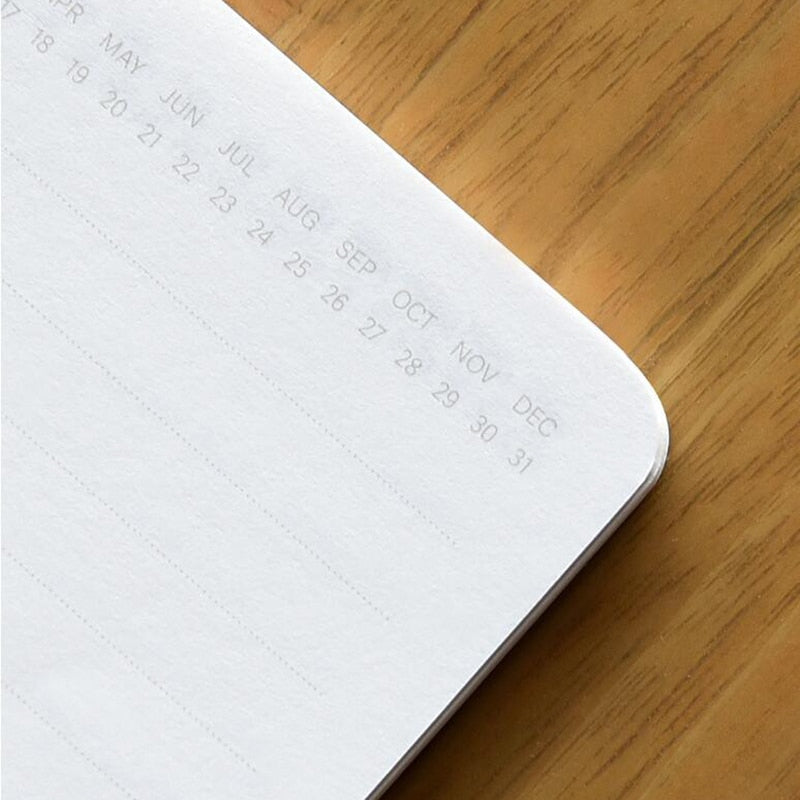 APR MAY JUN JUL AUG SEP OCT NOV DEC
17 18 19 20 21 22 23 24 25 26 27 28 29 30 31